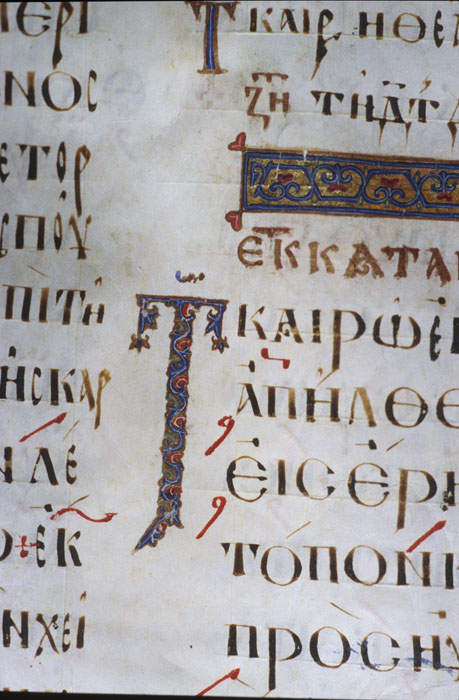 ΠΕΡΙ
ΝΟϹ
ΕΤΟΡ
ϹΠΟΥ
ΠΙΤΗ
ΗϹΚΑΡ
ΛΕ
ΕΚ
ΝΧΕΙ
ΤΚΑΙΡ ΗΘΕΛ
ΖΗ ΤΗ ΔΤ
ΕΚ Κ ΑΤΑ
ΤΚΑΙΡΩ ΕΚ
ΑΠΗΛΘΕ
ΕΙϹ ΕΡΗ
ΤΟΠΟΝ Κ
ΠΡΟϹΗΥ